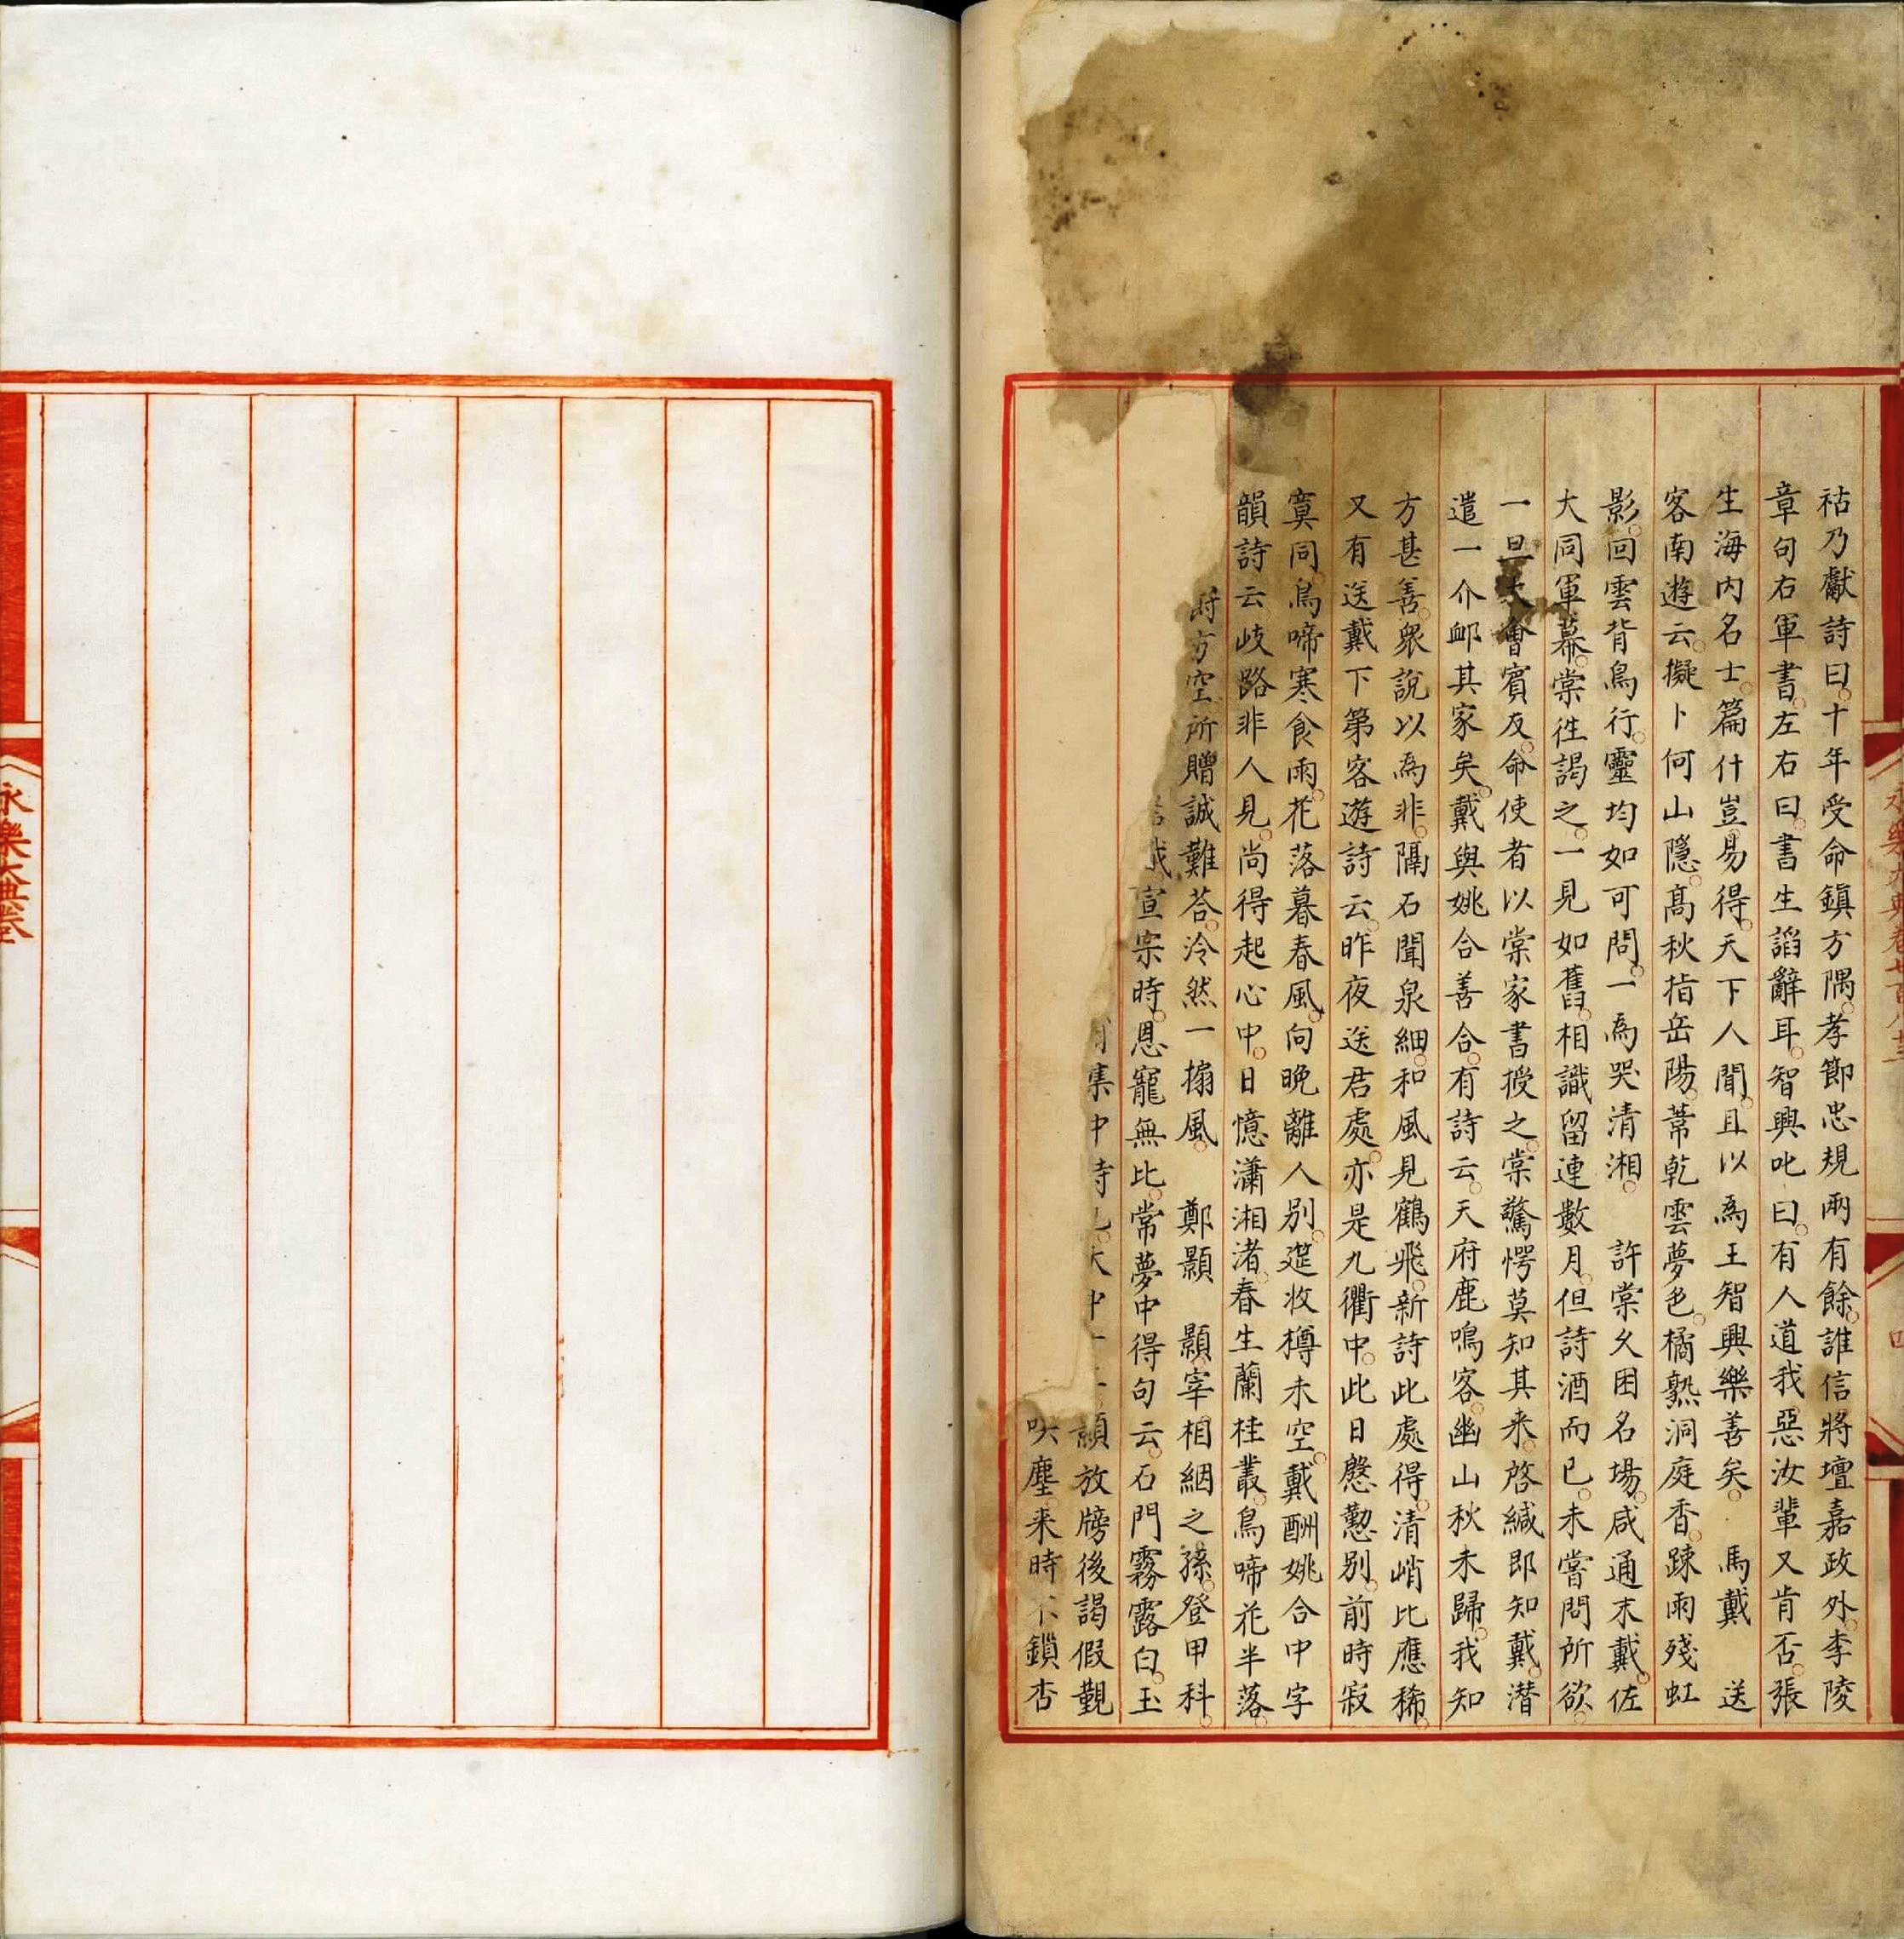 祜乃獻詩曰十年受命鎮方隅孝節忠規兩有餘誰信將壇嘉政外李陵
章句右軍書左右曰書生謟辭耳智興叱曰有人道我惡汝輩又肯否張
生海内名士篇什豈易得天下人聞且以為王智興樂善矣 馬戴 送
客南遊云擬卜何山隱髙秋指岳陽葦乾雲夢色橘熟洞庭香踈雨殘虹
影回雲背鳥行靈均如可問一為哭清湘 許棠久困名場咸通末戴佐
大同軍幕棠徃謁之一見如舊相識留連數月但詩酒而已未嘗問所欲
一旦大會賓友命使者以棠家書授之棠驚愕莫知其来啓緘即知戴潜
遣一介卹其家矣戴與姚合善合有詩云天府鹿鳴客幽山秋未歸我知
方甚善衆說以為非隔石聞泉細和風見鶴飛新詩此處得清峭比應稀
又有送戴下第客遊詩云昨夜送君處亦是九衢中此日慇懃别前時寂
寞同鳥啼寒食雨花落暮春風向晚離人别筵收樽未空戴酬姚合中字
韻詩云歧路非人見尚得起心中日憶瀟湘渚春生蘭桂叢鳥啼花半落
方空所贈誠難荅泠然一搦風 鄭顥 顥宰相絪之孫登甲科
宣宗時恩寵無比常夢中得句云石門霧露白玉
集中詩大中顥放牓後謁假覲
塵来時不鎖杏
永樂大典卷